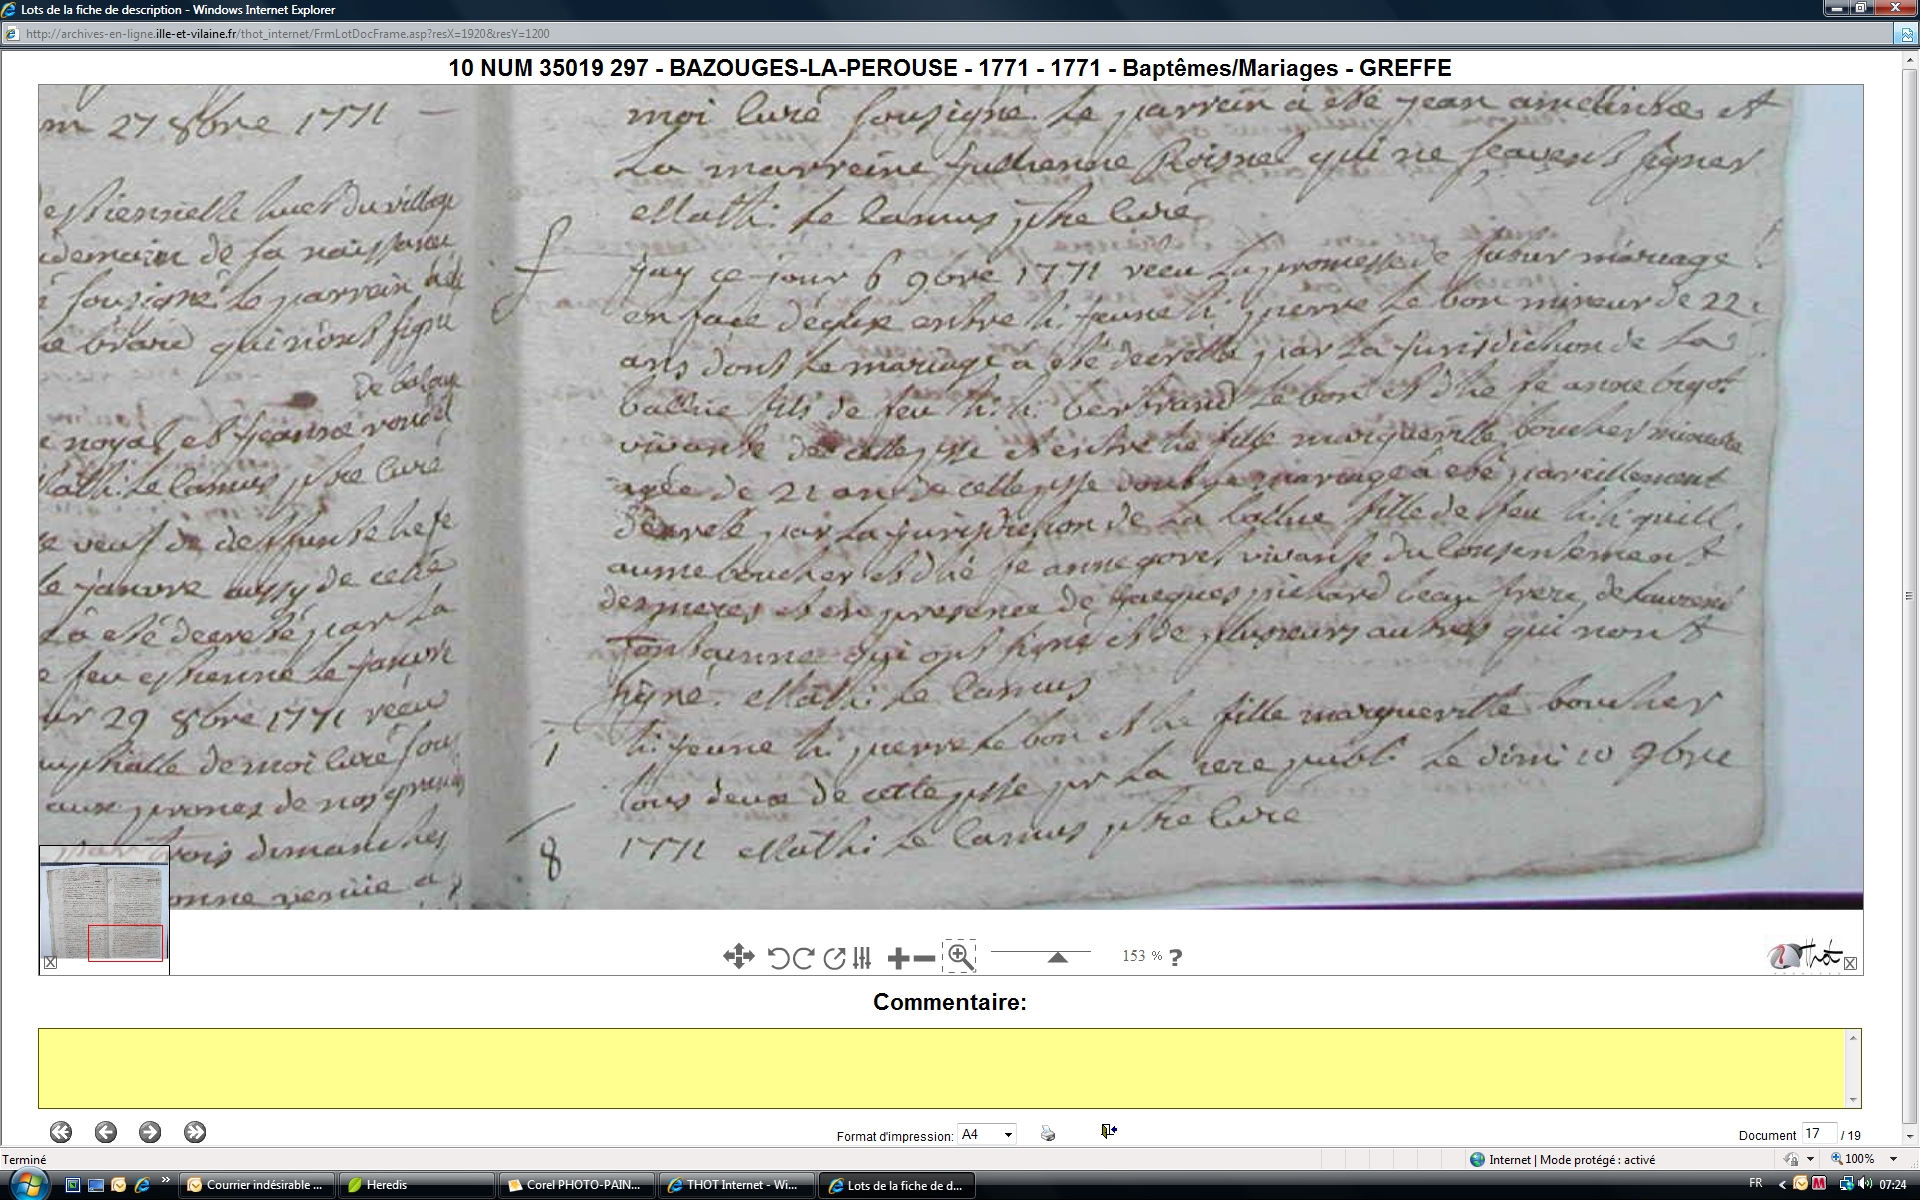 Lots de la fiche de description - Windows Internet Explorer
http://archives-en-ligne.ille-et-vilaine.fr/thot_internet/FrmLotDocFrame.asp?resX=1920&resY=1200
10 NUM 35019 297 - BAZOUGES-LA-PEROUSE - 1771 - 1771 - Baptêmes/Mariages - GREFFE
27 8bre 1771
estiennette huet du village
demain de la naissance
sousigné le parrein
brard qui n'ont signé
noyal et jeanne
Math: le camus ptre curé
veuf de deffunte
le janvre aussy de cette
a eté decreté par la
feu estienne le janvre
29 8bre 1771 receu
de moi curé sous
aux prones de nos
trois dimanches
moi curé sousigné. le parrein à eté jean et
La marreine jullienne Roisnel qui ne sçavent signer
Math: le camus ptre curé
j'ay ce jour 6 9bre 1771 receu la promesse de futur mariage
en face d'eglise entre h: jeune h: pierre le bon mineur de 22
ans dont le mariage à eté decretté par la jurisdiction de La
ballue fils de feu h: h: bertrand le bon et d'he fe anne bigot
vivante de cette psse et entre he fille margueritte boucher mineure
agée de 21 an de cette psse dont le mariage à eté pareillement
decreté par la jurisdiction de la ballue fille de feu h: h: guill
aume boucher et d'hé fe anne gorel vivante du consentement
des meres et en presence de jacques pichard beau frere, de Laurent
fontainne qui ont signé et de plusieurs autres qui n'ont
signé. Math: le camus
1 h: jeune h: pierre le bon et he fille margueritte boucher
tous deux de cette psse pr La 1ere publ: le dim: 10 9bre
8 1771 Math: le camus ptre curé
153 % ?
Thot
Commentaire:
Format d'impression: A4
Document 17 / 19
Terminé
Internet | Mode protégé : activé
100%
Courrier indésirable ...
Heredis
Corel PHOTO-PAIN...
THOT Internet - Wi...
Lots de la fiche de d...
FR
07:24